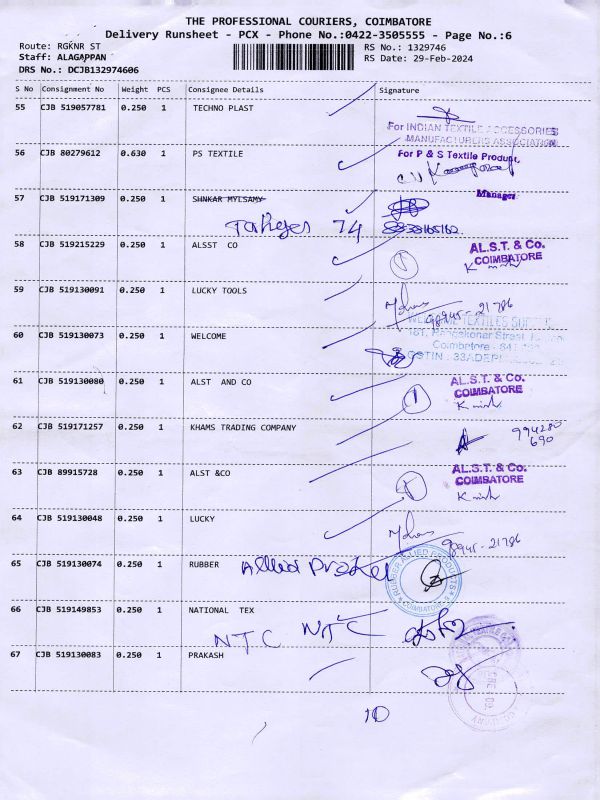 THE PROFESSIONAL COURIERS, COIMBATORE
Delivery Runsheet - PCX - Phone No.:0422-3505555 - Page No.:6
Route: RGKNR ST
RS No.: 1329746
Staff: ALAGAPPAN
RS Date: 29-Feb-2024
DRS No.: DCJB132974606
S No Consignment No Weight PCS Consignee Details Signature
55 CJB 519057781 0.250 1 TECHNO PLAST
For INDIAN TEXTILE ACCESSORIES
MANUFACTURERS ASSOCIATION
56 CJB 80279612 0.630 1 PS TEXTILE
For P & S Textile Product,
Manager
57 CJB 519171309 0.250 1 SHNKAR MYLSAMY
74
58 CJB 519215229 0.250 1 ALSST CO
AL.S.T. & Co.
COIMBATORE
59 CJB 519130091 0.250 1 LUCKY TOOLS
98945-21786
60 CJB 519130073 0.250 1 WELCOME
WELCOME TEXTILES
Coimbatore
61 CJB 519130080 0.250 1 ALST AND CO
AL.S.T. & Co.
COIMBATORE
62 CJB 519171257 0.250 1 KHAMS TRADING COMPANY
994280
690
63 CJB 89915728 0.250 1 ALST &CO
AL.S.T. & Co.
COIMBATORE
64 CJB 519130048 0.250 1 LUCKY
98945-21786
65 CJB 519130074 0.250 1 RUBBER Allied
RUBBER ALLIED PRODUCTS
COIMBATORE
66 CJB 519149853 0.250 1 NATIONAL TEX
NTC NTC
67 CJB 519130083 0.250 1 PRAKASH
10